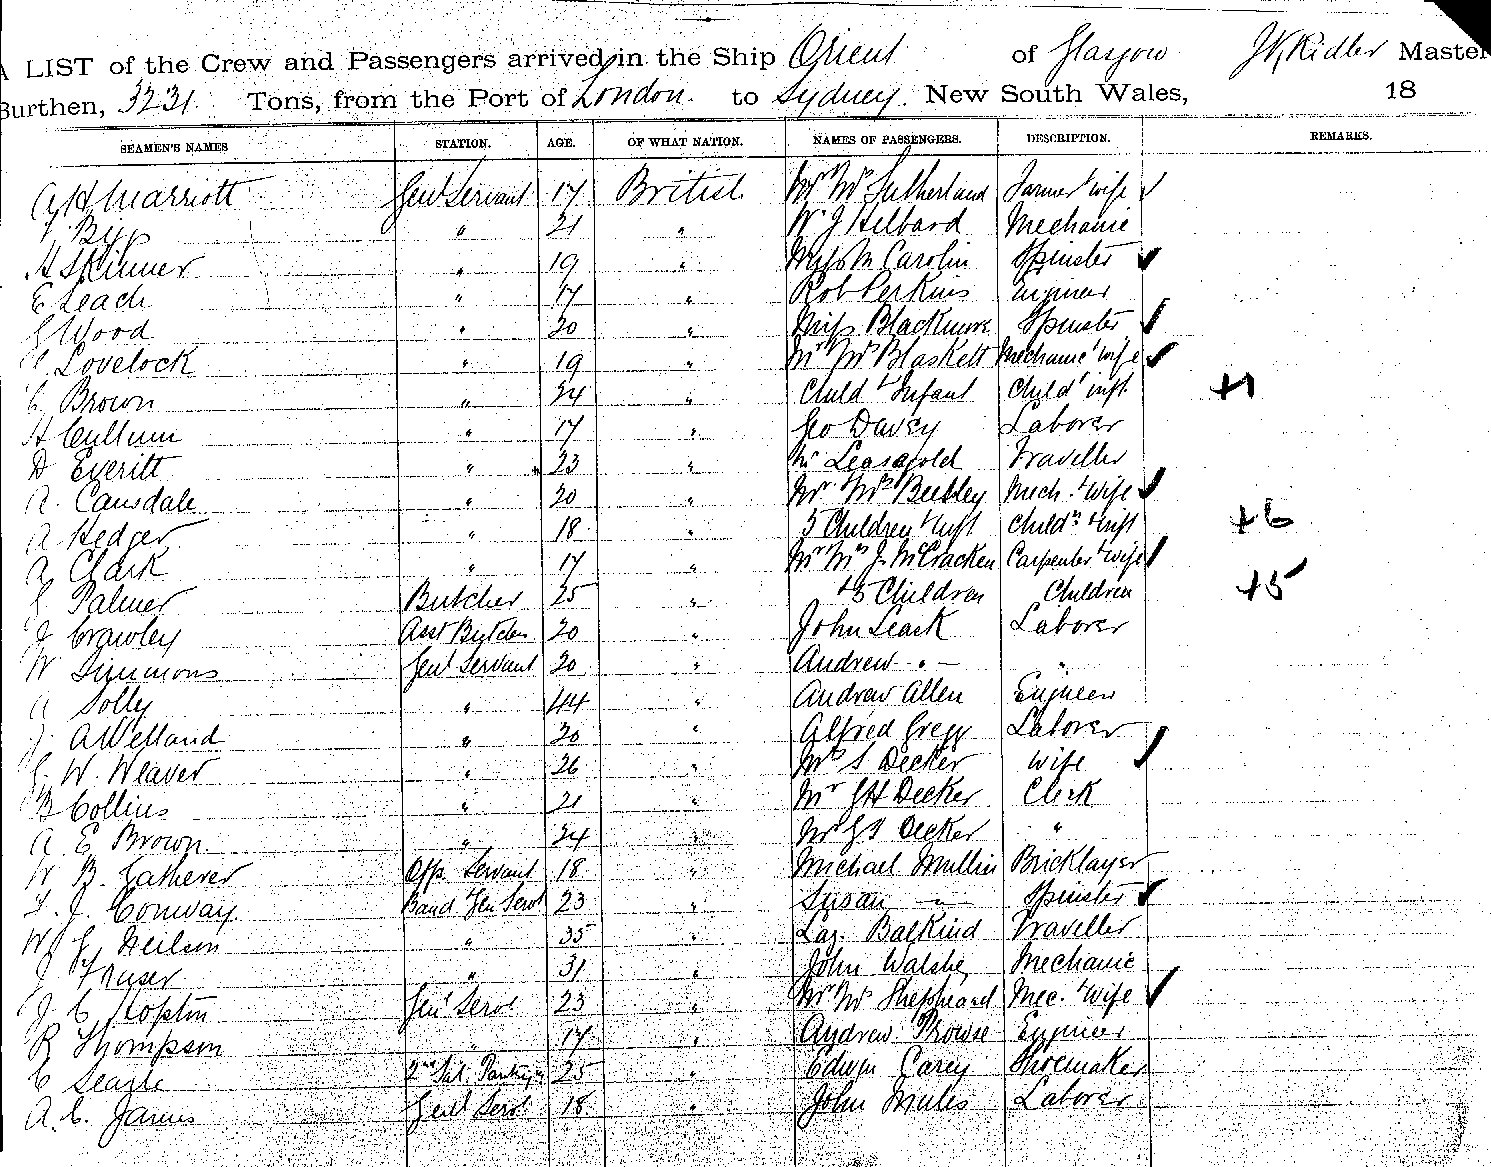 A LIST of the Crew and Passengers arrived in the Ship Orient of Glasgow J K Ridler Master
Burthen, 3231 Tons, from the Port of London to Sydney. New South Wales, 18
SEAMEN'S NAMES STATION. AGE. OF WHAT NATION. NAMES OF PASSENGERS. DESCRIPTION. REMARKS.
A H Marriott Genl Servant 17 British Mr Mrs Sutherland Farmer wife
Bye " 21 " W J Hibbard Mechanic
H Skinner " 19 " Miss M Carolin Spinster
E Leach " 17 " Rob Perkins Engineer
G Wood " 20 " Miss Blackmore Spinster
Lovelock " 19 " Mr Mrs Blaskett Mechanic & wife
C Brown " 24 " Child & Infant Child inft +1
H Cullum " 17 " Geo Davey Laborer
D Everitt " 23 " Traveller
A. Cansdale " 20 " Mr Mrs Mech. & Wife
A Hedger " 18 " 5 Children & Inft Childn & Inft +6
A Clark " 17 " Mr Mrs J. McCracken Carpenter & wife
Palmer Butcher 25 " +5 Children Children +5
J Crawley Asst Butcher 20 " John Leack Laborer
W Simmons Genl Servant 20 " Andrew " "
A Solly " 44 " Andrew Allen Engineer
J. A Welland " 20 " Alfred Gregg Laborer
G. W. Weaver " 26 " Mrs S Decker Wife
B Collins " 21 " Mr G H Decker Clerk
A E Brown " 24 " Mr G S Decker "
W B. Gatherer Offs. Servant 18 " Michael Mullin Bricklayer
F. J. Conway Band & Gen Servt 23 " Susan " Spinster
W G Neilson " 35 " Laz. Balkind Traveller
J Fraser " 31 " John Walshe Mechanic
J C Hopton Genl Servt 23 " Mr Mrs Sheppeard Mec. & Wife
R Thompson " 17 " Andrew Prowse Engineer
C Searle 2nd Sal. 25 " Edwin Carey Shoemaker
A. C. James Genl Servt 18 " John Laborer